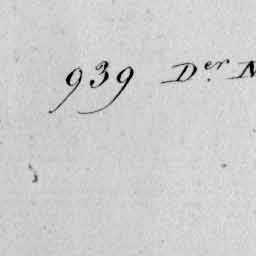 939 D.er